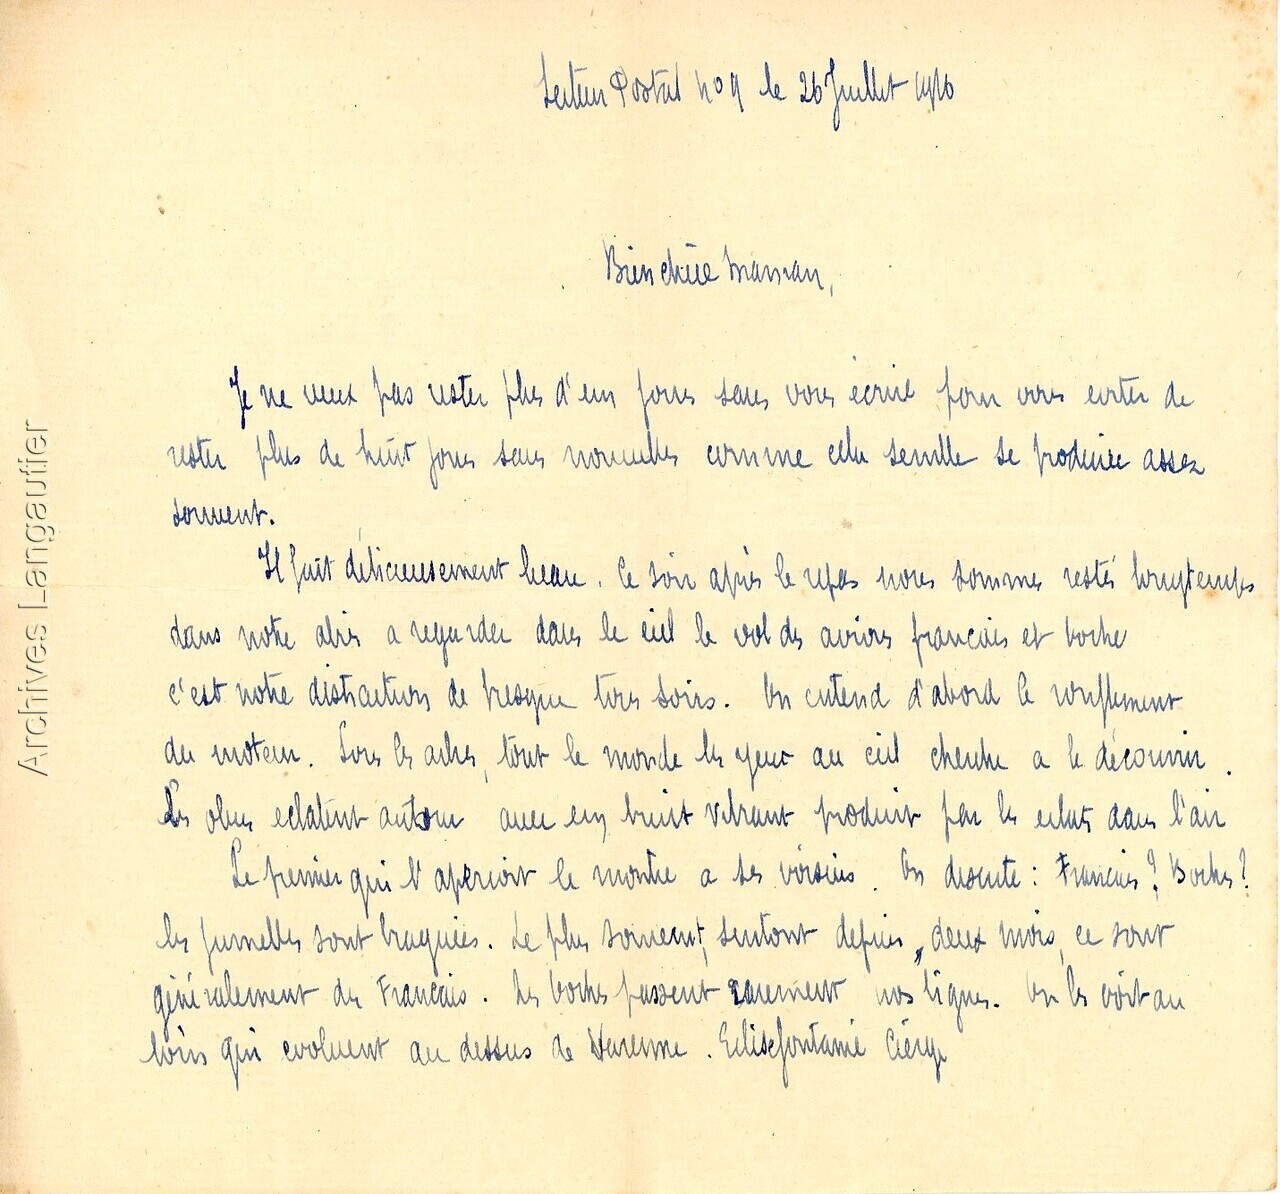 Secteur Postal no 9 le 26 Juillet 1916
Bien chère Maman,
Je ne veux pas rester plus d'un jour sans vous écrire pour vous eviter de
rester plus de huit jours sans nouvelles comme cela semble se produire assez
souvent.
Il fait délicieusement beau. Ce soir après le repas nous sommes restés longtemps
dans notre abri a regarder dans le ciel le vol des avions français et boche
c'est notre distraction de presque tous soirs. On entend d'abord le ronflement
du moteur. Sous les arbres, tout le monde les yeux au ciel cherche a le découvrir.
Les obus eclatent autour avec un bruit vibrant produit par les eclats dans l'air
Le premier qui l'aperçoit le montre a ses voisins. On discute : Français ? Boches ?
les jumelles sont braquées. Le plus souvent, surtout depuis deux mois, ce sont
généralement des Francais. Les boches passent rarement nos lignes. On les voit au
loin qui evoluent au dessus de Varenne. Eclisfontaine Cierge
Archives Langautier